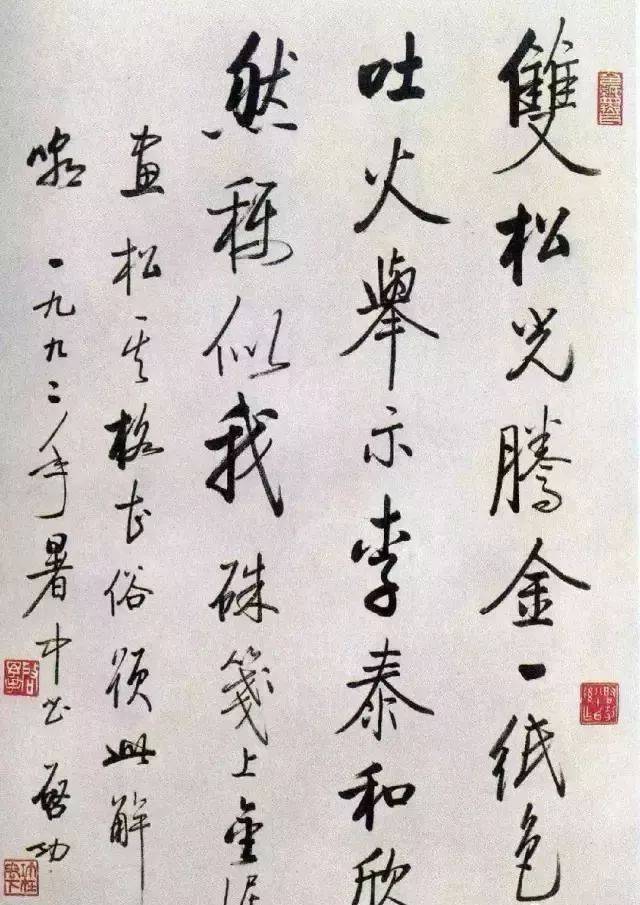 雙松光騰金一紙色
吐火舉示李泰和欣
然稱似我硃箋上金泥
畫松其格甚俗預此解
嘲一九九二年暑中書啓功